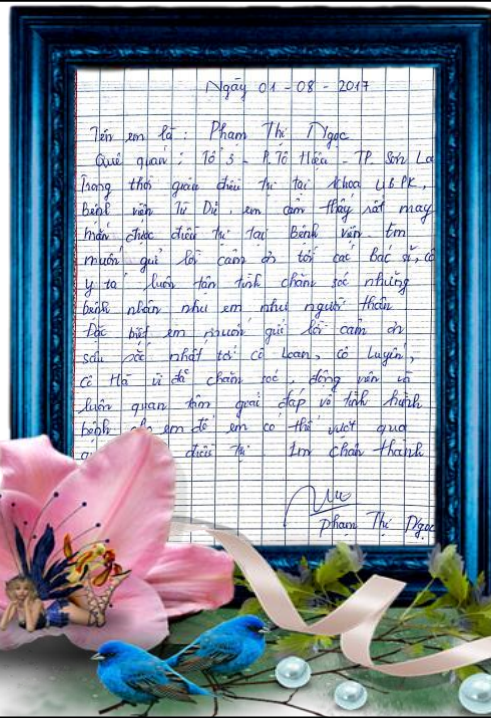 Ngày 01 - 08 - 2017
Tên em là : Phạm Thị Ngọc
Quê quán : Tổ 3 - P. Tô Hiệu - TP. Sơn La
Trong thời gian điều trị tại khoa UBPK,
Bệnh viện Từ Dũ, em cảm thấy rất may
mắn được điều trị tại Bệnh viện. Em
muốn gửi lời cảm ơn tới các Bác sĩ, cô
y tá luôn tận tình chăm sóc những
bệnh nhân như em như người thân
Đặc biệt em muốn gửi lời cảm ơn
sâu sắc nhất tới cô Loan, cô Luyến,
cô Hà vì đã chăm sóc, động viên và
luôn quan tâm giải đáp về tình hình
bệnh cho em để em có thể vượt qua
điều trị Em chân thành
Phạm Thị Ngọc